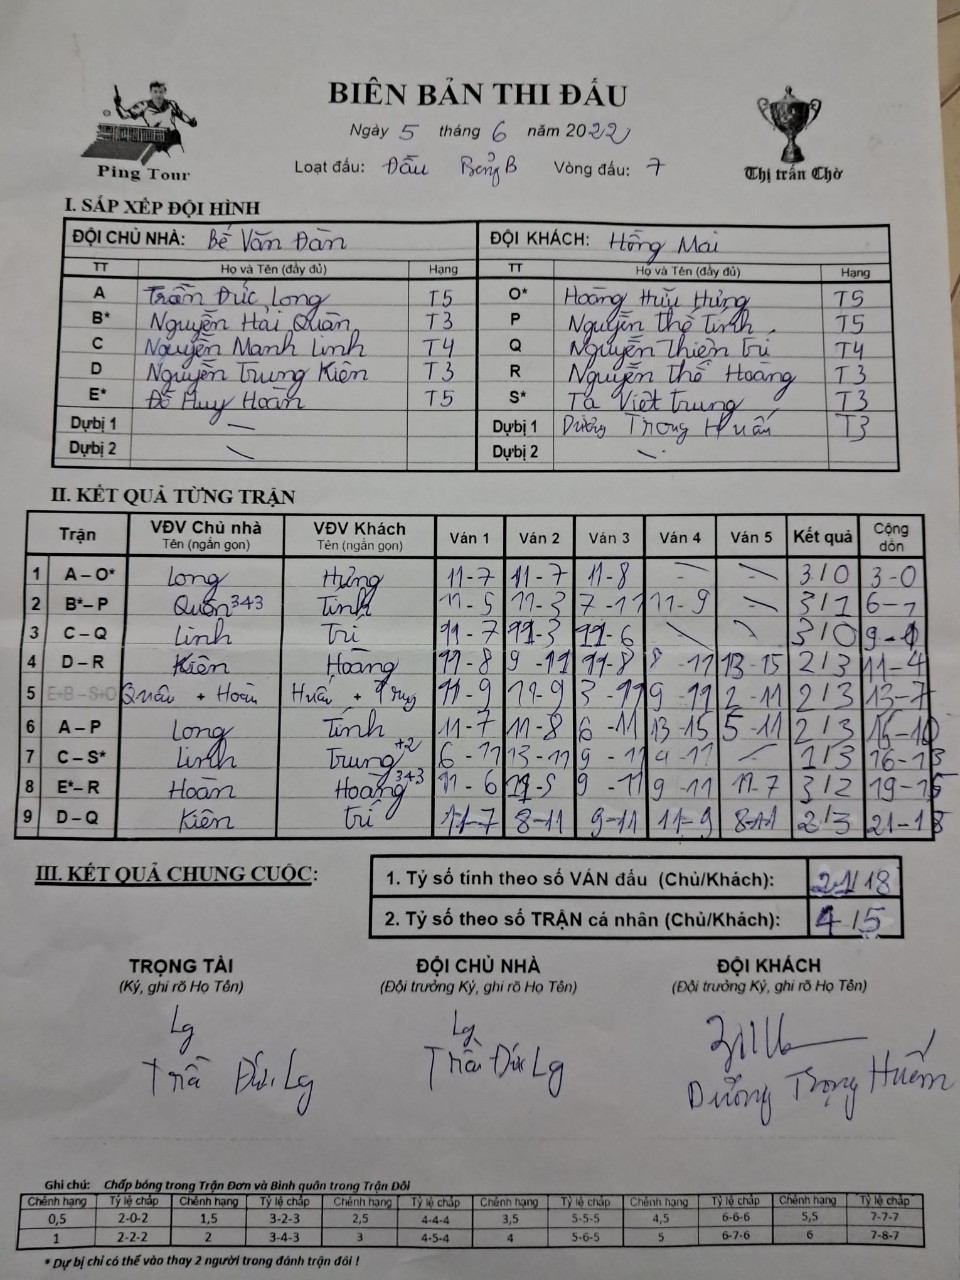 BIÊN BẢN THI ĐẤU
Ngày 5 tháng 6 năm 2022
Ping Tour
Loạt đấu: Đấu Bảng B Vòng đấu: 7
Thị trấn Chờ
I. SẮP XẾP ĐỘI HÌNH
ĐỘI CHỦ NHÀ: Bế Văn Đàn ĐỘI KHÁCH: Hồng Mai
TT Họ và Tên (đầy đủ) Hạng TT Họ và Tên (đầy đủ) Hạng
A Trần Đức Long T5 O* Hoàng Hữu Hưng T5
B* Nguyễn Hải Quân T3 P Nguyễn Thế Tính T5
C Nguyễn Mạnh Linh T4 Q Nguyễn Thiện Trí T4
D Nguyễn Trung Kiên T3 R Nguyễn Thế Hoàng T3
E* Đỗ Huy Hoàn T5 S* Tạ Việt Trung T3
Dự bị 1 — Dự bị 1 Dương Trọng Huấn T3
Dự bị 2 \ Dự bị 2 \
II. KẾT QUẢ TỪNG TRẬN
Trận VĐV Chủ nhà VĐV Khách Ván 1 Ván 2 Ván 3 Ván 4 Ván 5 Kết quả Cộng dồn
Tên (ngắn gọn) Tên (ngắn gọn)
1 A – O* Long Hưng 11-7 11-7 11-8 \ \ 3/0 3-0
2 B* – P Quân 343 Tính 11-5 11-3 7-11 11-9 \ 3/1 6-1
3 C – Q Linh Trí 11-7 11-3 11-6 \ \ 3/0 9-1
4 D – R Kiên Hoàng 11-8 9-11 11-8 8-11 13-15 2/3 11-4
5 E+B – S+O Quân + Hoàn Huấn + Trung 11-9 11-9 3-11 9-11 2-11 2/3 13-7
6 A – P Long Tính 11-7 11-8 6-11 13-15 5-11 2/3 15-10
7 C – S* Linh Trung +2 6-11 13-11 9-11 9-11 — 1/3 16-13
8 E* – R Hoàn Hoàng 343 11-6 11-5 9-11 9-11 11-7 3/2 19-15
9 D – Q Kiên Trí 11-7 8-11 9-11 11-9 8-11 2/3 21-18
III. KẾT QUẢ CHUNG CUỘC:
1. Tỷ số tính theo số VÁN đấu (Chủ/Khách): 21/18
2. Tỷ số theo số TRẬN cá nhân (Chủ/Khách): 4/5
TRỌNG TÀI ĐỘI CHỦ NHÀ ĐỘI KHÁCH
(Ký, ghi rõ Họ Tên) (Đội trưởng Ký, ghi rõ Họ Tên) (Đội trưởng Ký, ghi rõ Họ Tên)
Lg Lg
Trần Đức Lg Trần Đức Lg Dương Trọng Huấn
Ghi chú: Chấp bóng trong Trận Đơn và Bình quân trong Trận Đôi
Chênh hạng Tỷ lệ chấp Chênh hạng Tỷ lệ chấp Chênh hạng Tỷ lệ chấp Chênh hạng Tỷ lệ chấp Chênh hạng Tỷ lệ chấp Chênh hạng Tỷ lệ chấp
0,5 2-0-2 1,5 3-2-3 2,5 4-4-4 3,5 5-5-5 4,5 6-6-6 5,5 7-7-7
1 2-2-2 2 3-4-3 3 4-5-4 4 5-6-5 5 6-7-6 6 7-8-7
* Dự bị chỉ có thể vào thay 2 người trong đánh trận đôi !